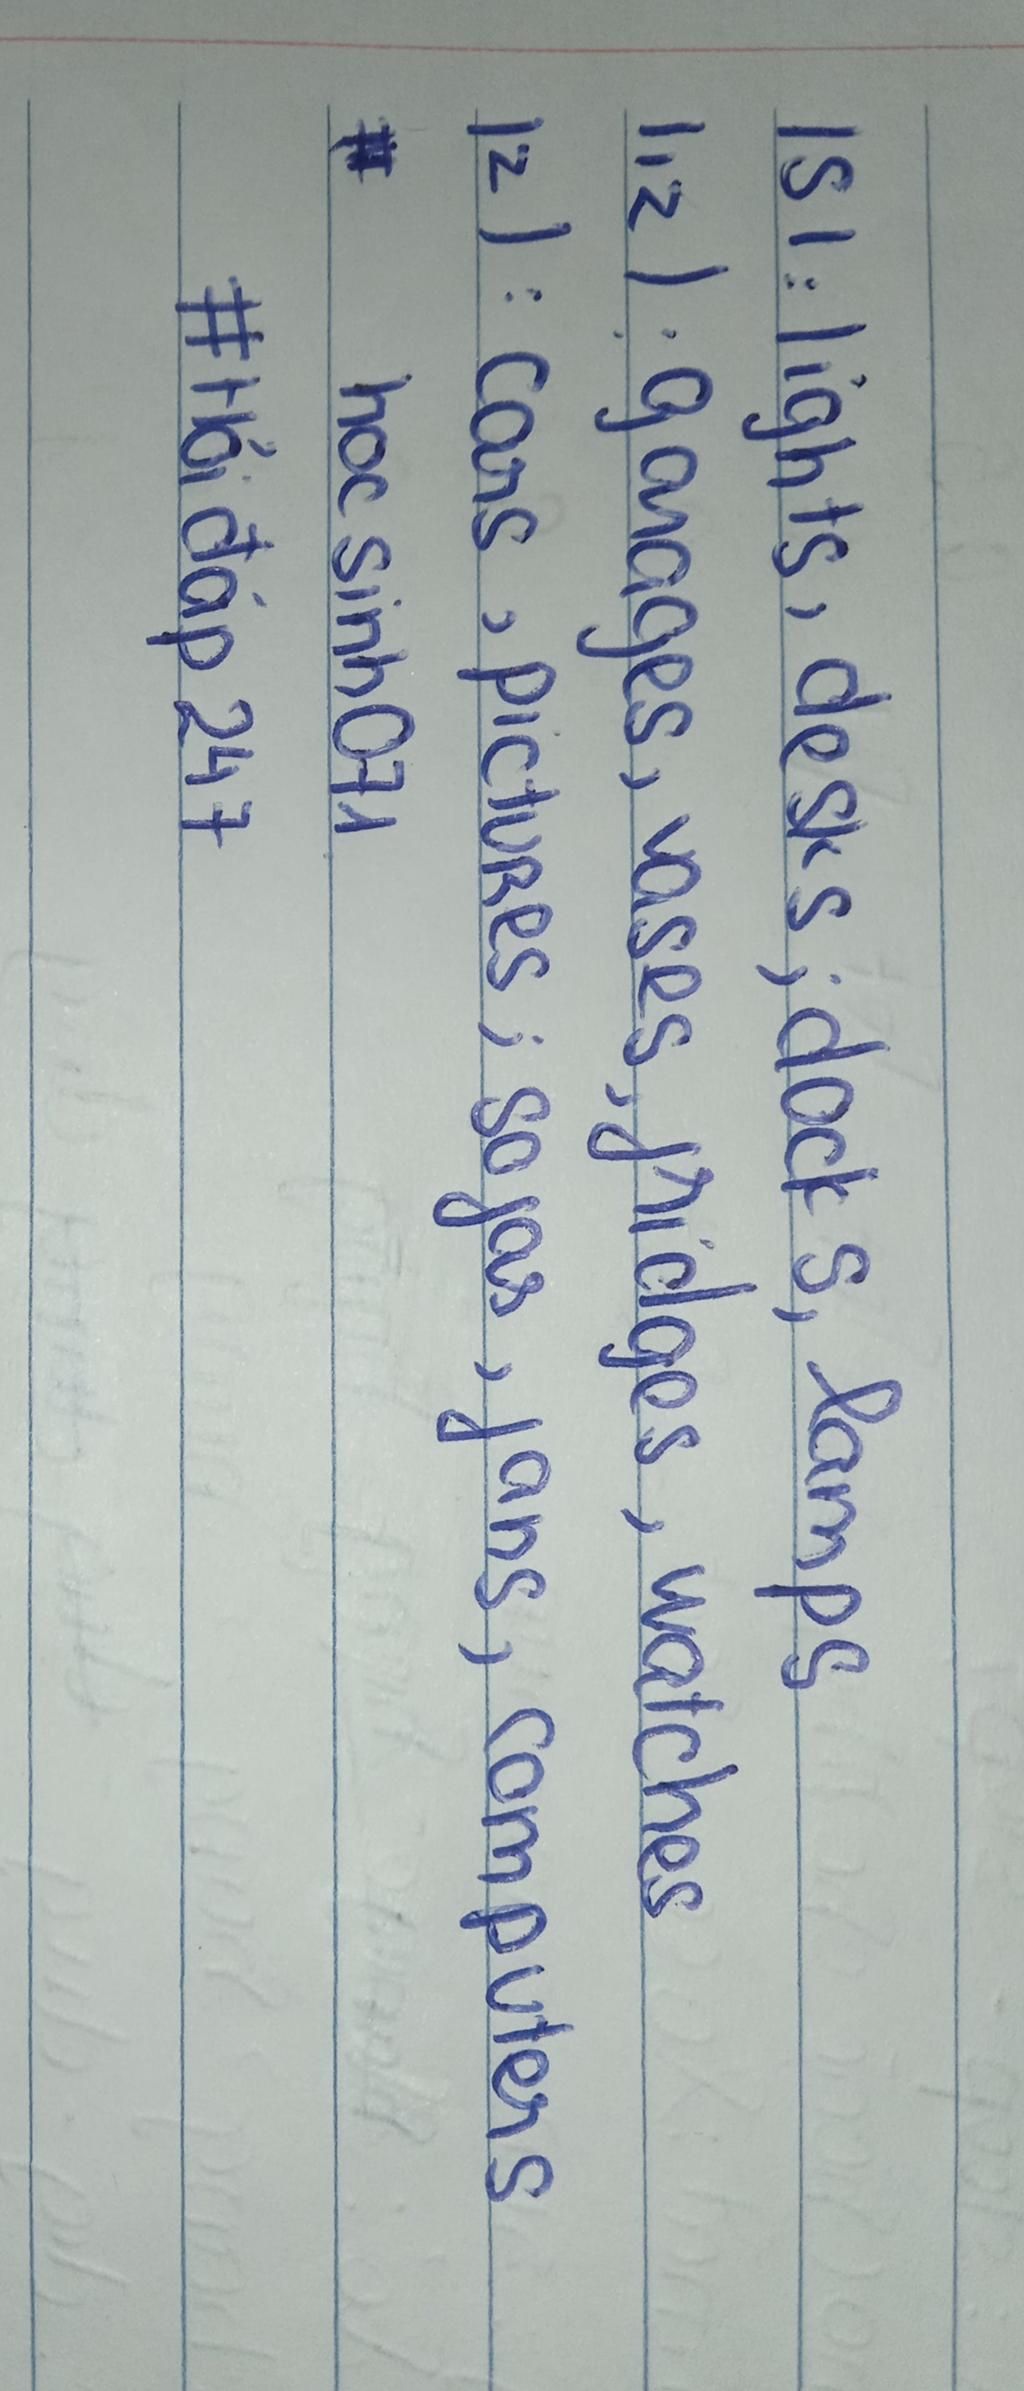 /s/ : lights, desks ; clocks, lamps
/ız/ : garages, vases, fridges, watches
/z/ : cars, pictures ; sofas, fans, computers
# hocsinh071
#Hỏi đáp 247